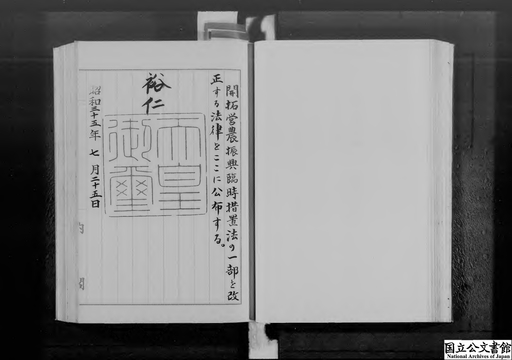 開拓営農振興臨時措置法の一部を改
正する法律をここに公布する。
裕仁
天皇
御璽
昭和三十五年七月二十五日
内閣
国立公文書館
National Archives of Japan